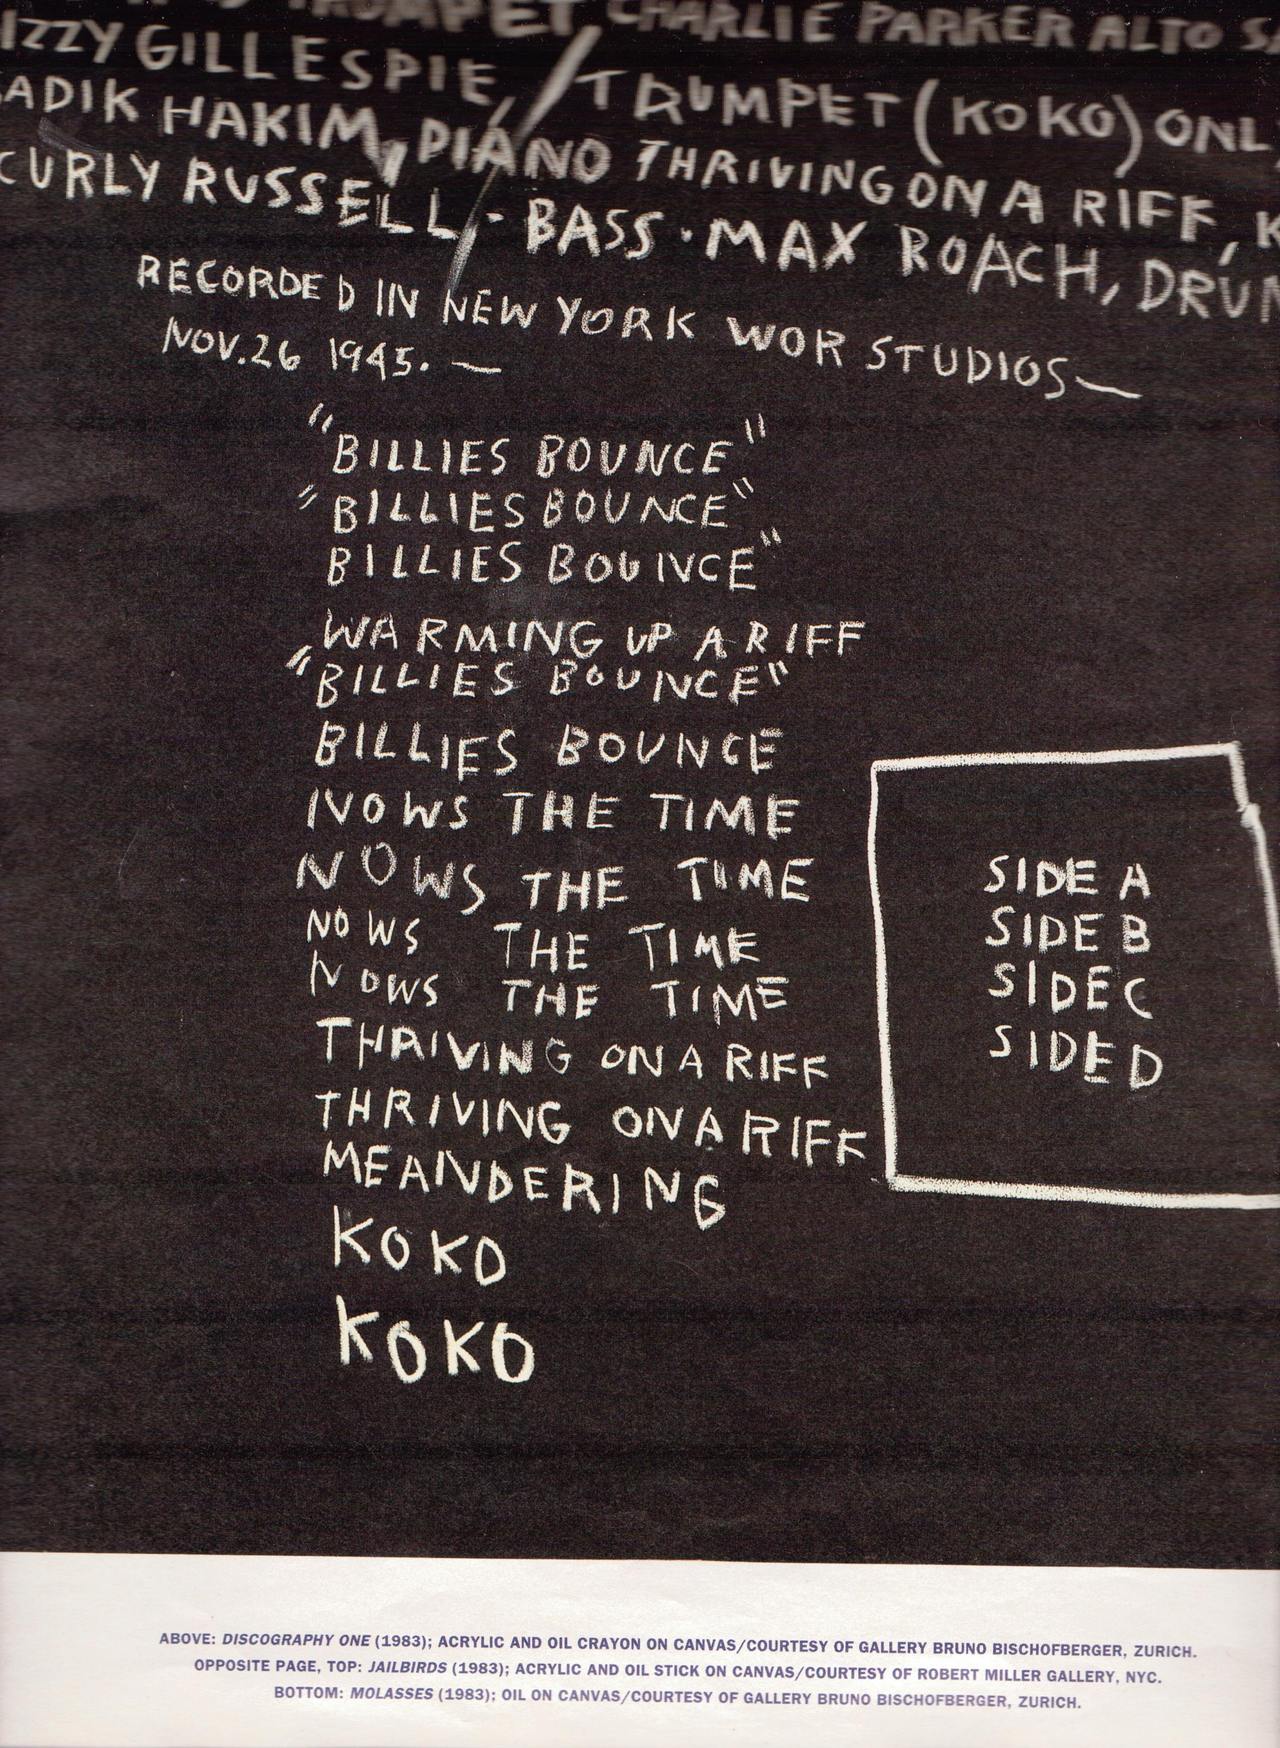 TRUMPET, CHARLIE PARKER ALTO SA
IZZY GILLESPIE, TRUMPET (KOKO) ONL
SADIK HAKIM, PIANO THRIVING ON A RIFF, K
CURLY RUSSELL · BASS · MAX ROACH, DRUM
RECORDED IN NEW YORK WOR STUDIOS—
NOV. 26 1945. —
"BILLIES BOUNCE"
"BILLIES BOUNCE"
BILLIES BOUNCE"
WARMING UP A RIFF
"BILLIES BOUNCE"
BILLIES BOUNCE
NOWS THE TIME
NOWS THE TIME
NOWS THE TIME
NOWS THE TIME
THRIVING ON A RIFF
THRIVING ON A RIFF
MEANDERING
KOKO
KOKO
SIDE A
SIDE B
SIDE C
SIDE D
ABOVE: DISCOGRAPHY ONE (1983); ACRYLIC AND OIL CRAYON ON CANVAS/COURTESY OF GALLERY BRUNO BISCHOFBERGER, ZURICH.
OPPOSITE PAGE, TOP: JAILBIRDS (1983); ACRYLIC AND OIL STICK ON CANVAS/COURTESY OF ROBERT MILLER GALLERY, NYC.
BOTTOM: MOLASSES (1983); OIL ON CANVAS/COURTESY OF GALLERY BRUNO BISCHOFBERGER, ZURICH.